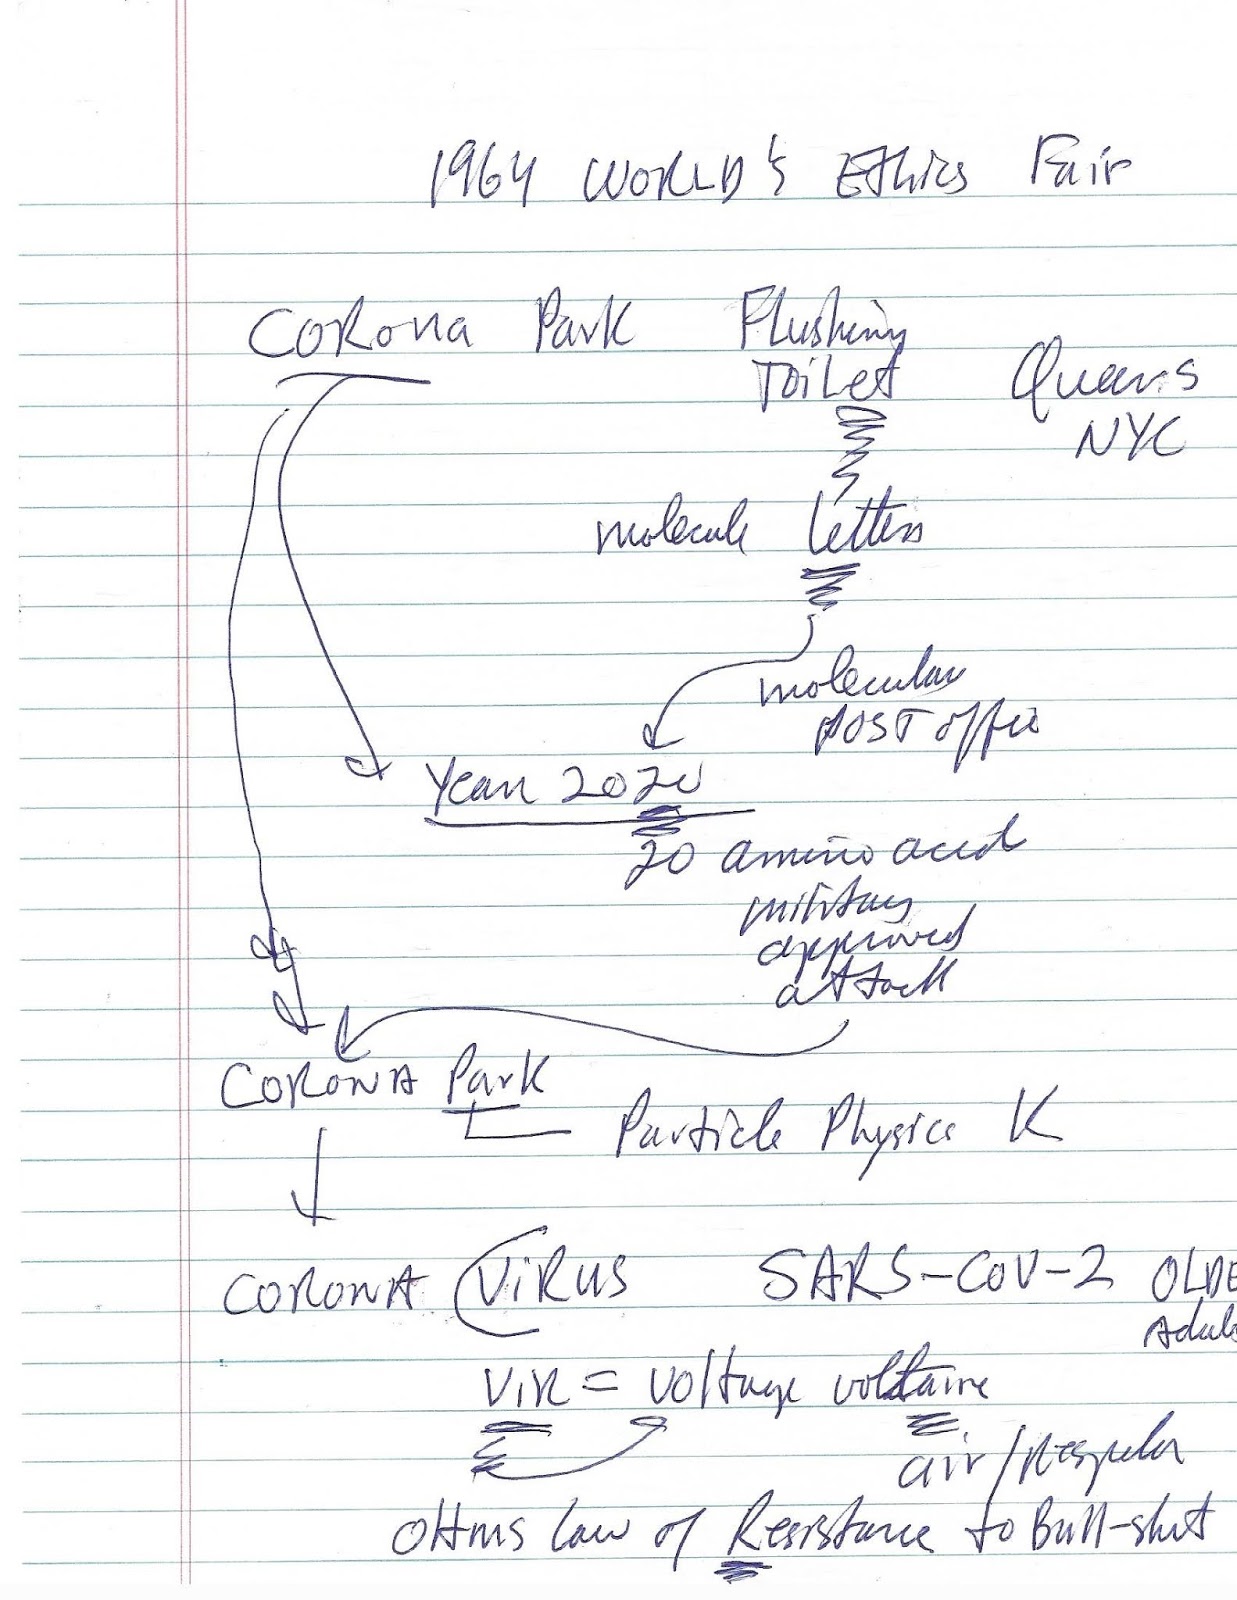 1964 WORLD's Ethics Fair
Corona Park Flushing Toilet Queens NYC
molecule letters
molecular
POST office
Year 2020
20 amino acid
military
approved
attack
CORONA Park
Particle Physics K
CORONA VIRUS SARS-COV-2 OLDE
Adul
Vir = voltage voltaire
air/
OHms law of Resistance to Bull-shit